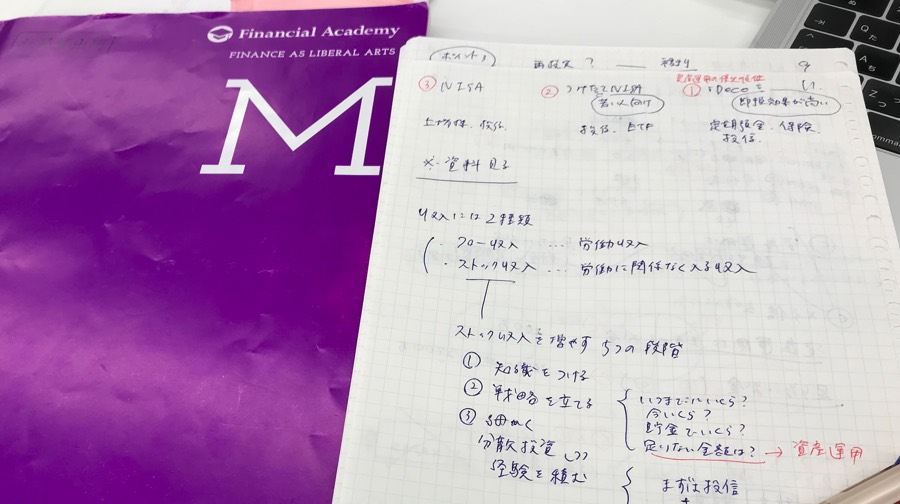 Financial Academy
FINANCE AS LIBERAL ARTS
M
ポイント3
③ NISA
② つみたてNISA
若い人向け
① iDeCo
節税効果が高い
上場株、投信
投信、ETF
定期預金、保険、
投信、
※資料見る
収入には2種類
・フロー収入 … 労働収入
・ストック収入 … 労働に関係なく入る収入
ストック収入を増やす 5つの段階
① 知識をつける
② 戦略を立てる
いつまでにいくら?
今いくら?
貯金でいくら?
足りない金額は? → 資産運用
③
分散投資しつつ
経験を積む
まずは投信